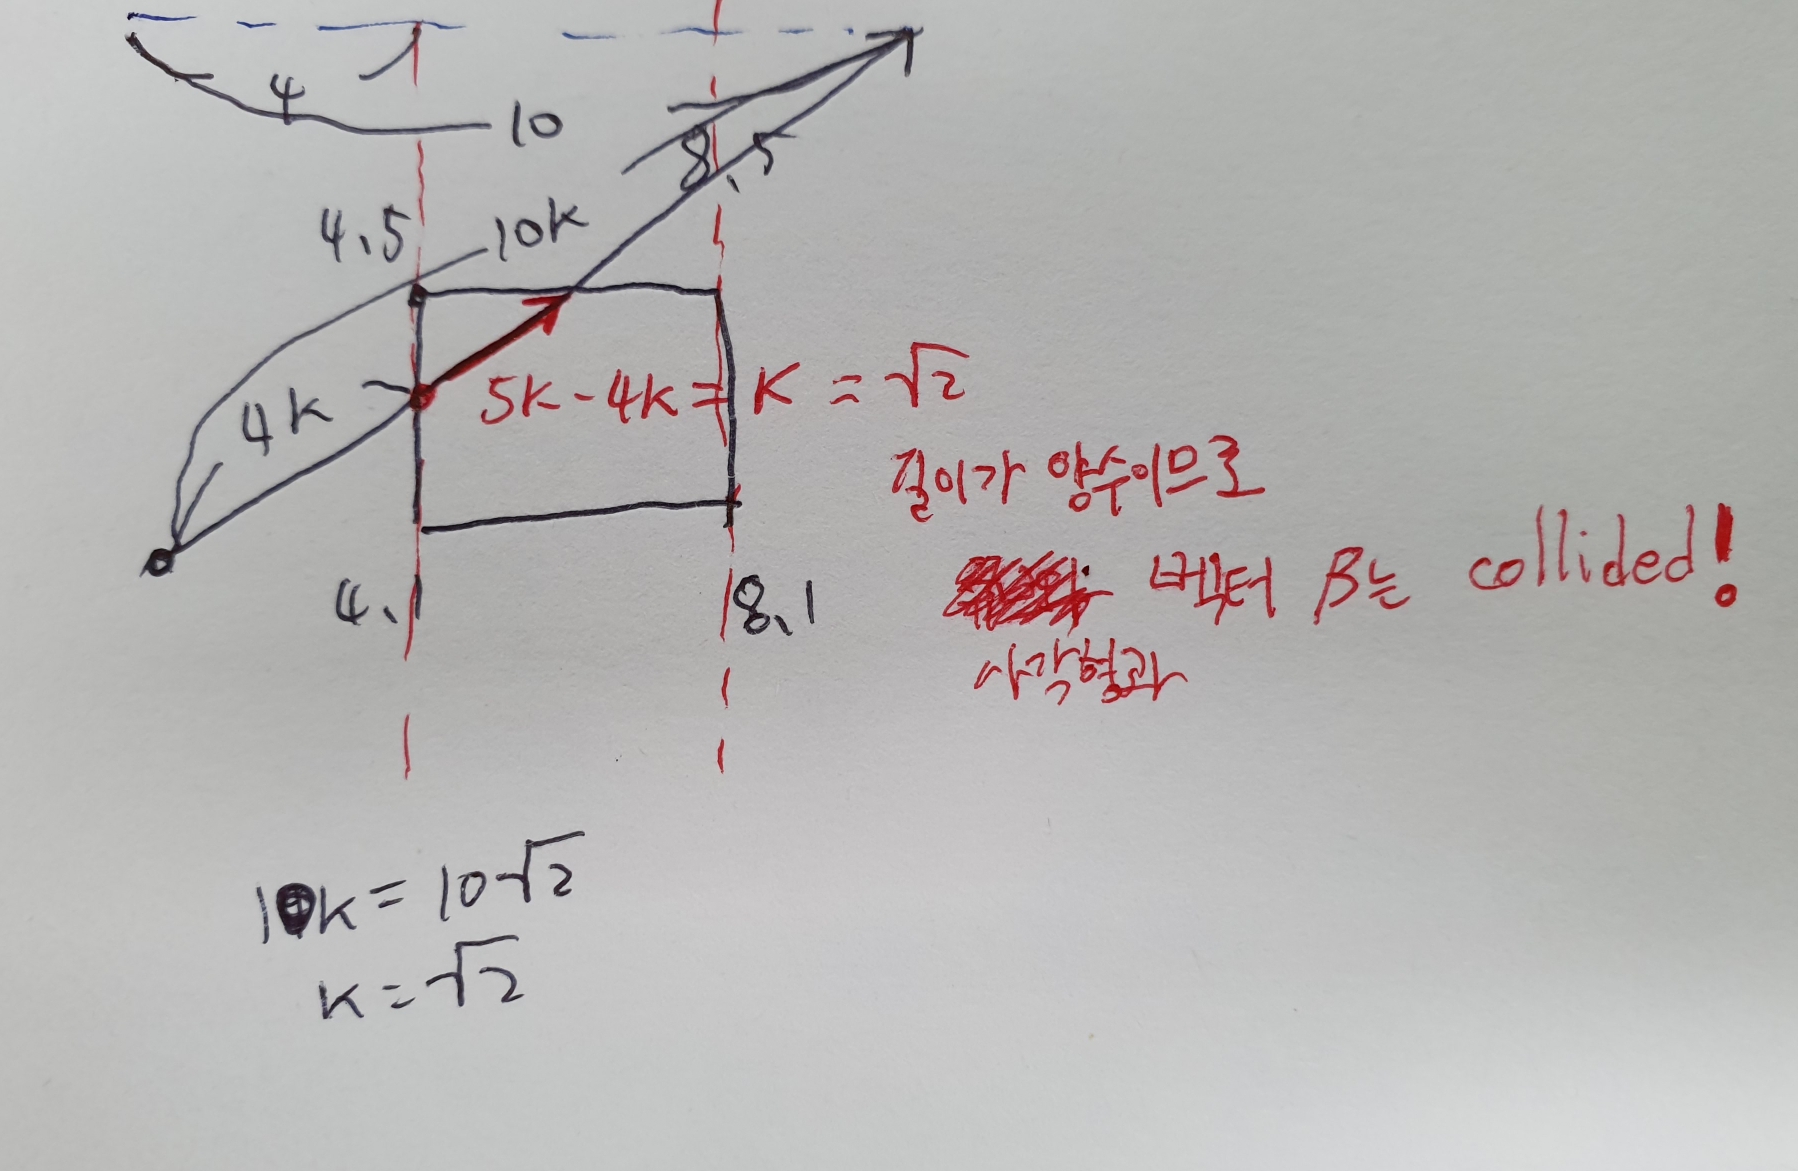 4
10
8.5
4.5
10k
4k
5k-4k=k=√2
길이가 양수이므로
벡터 β는 collided!
사각형과
4.1
8.1
10k=10√2
k=√2